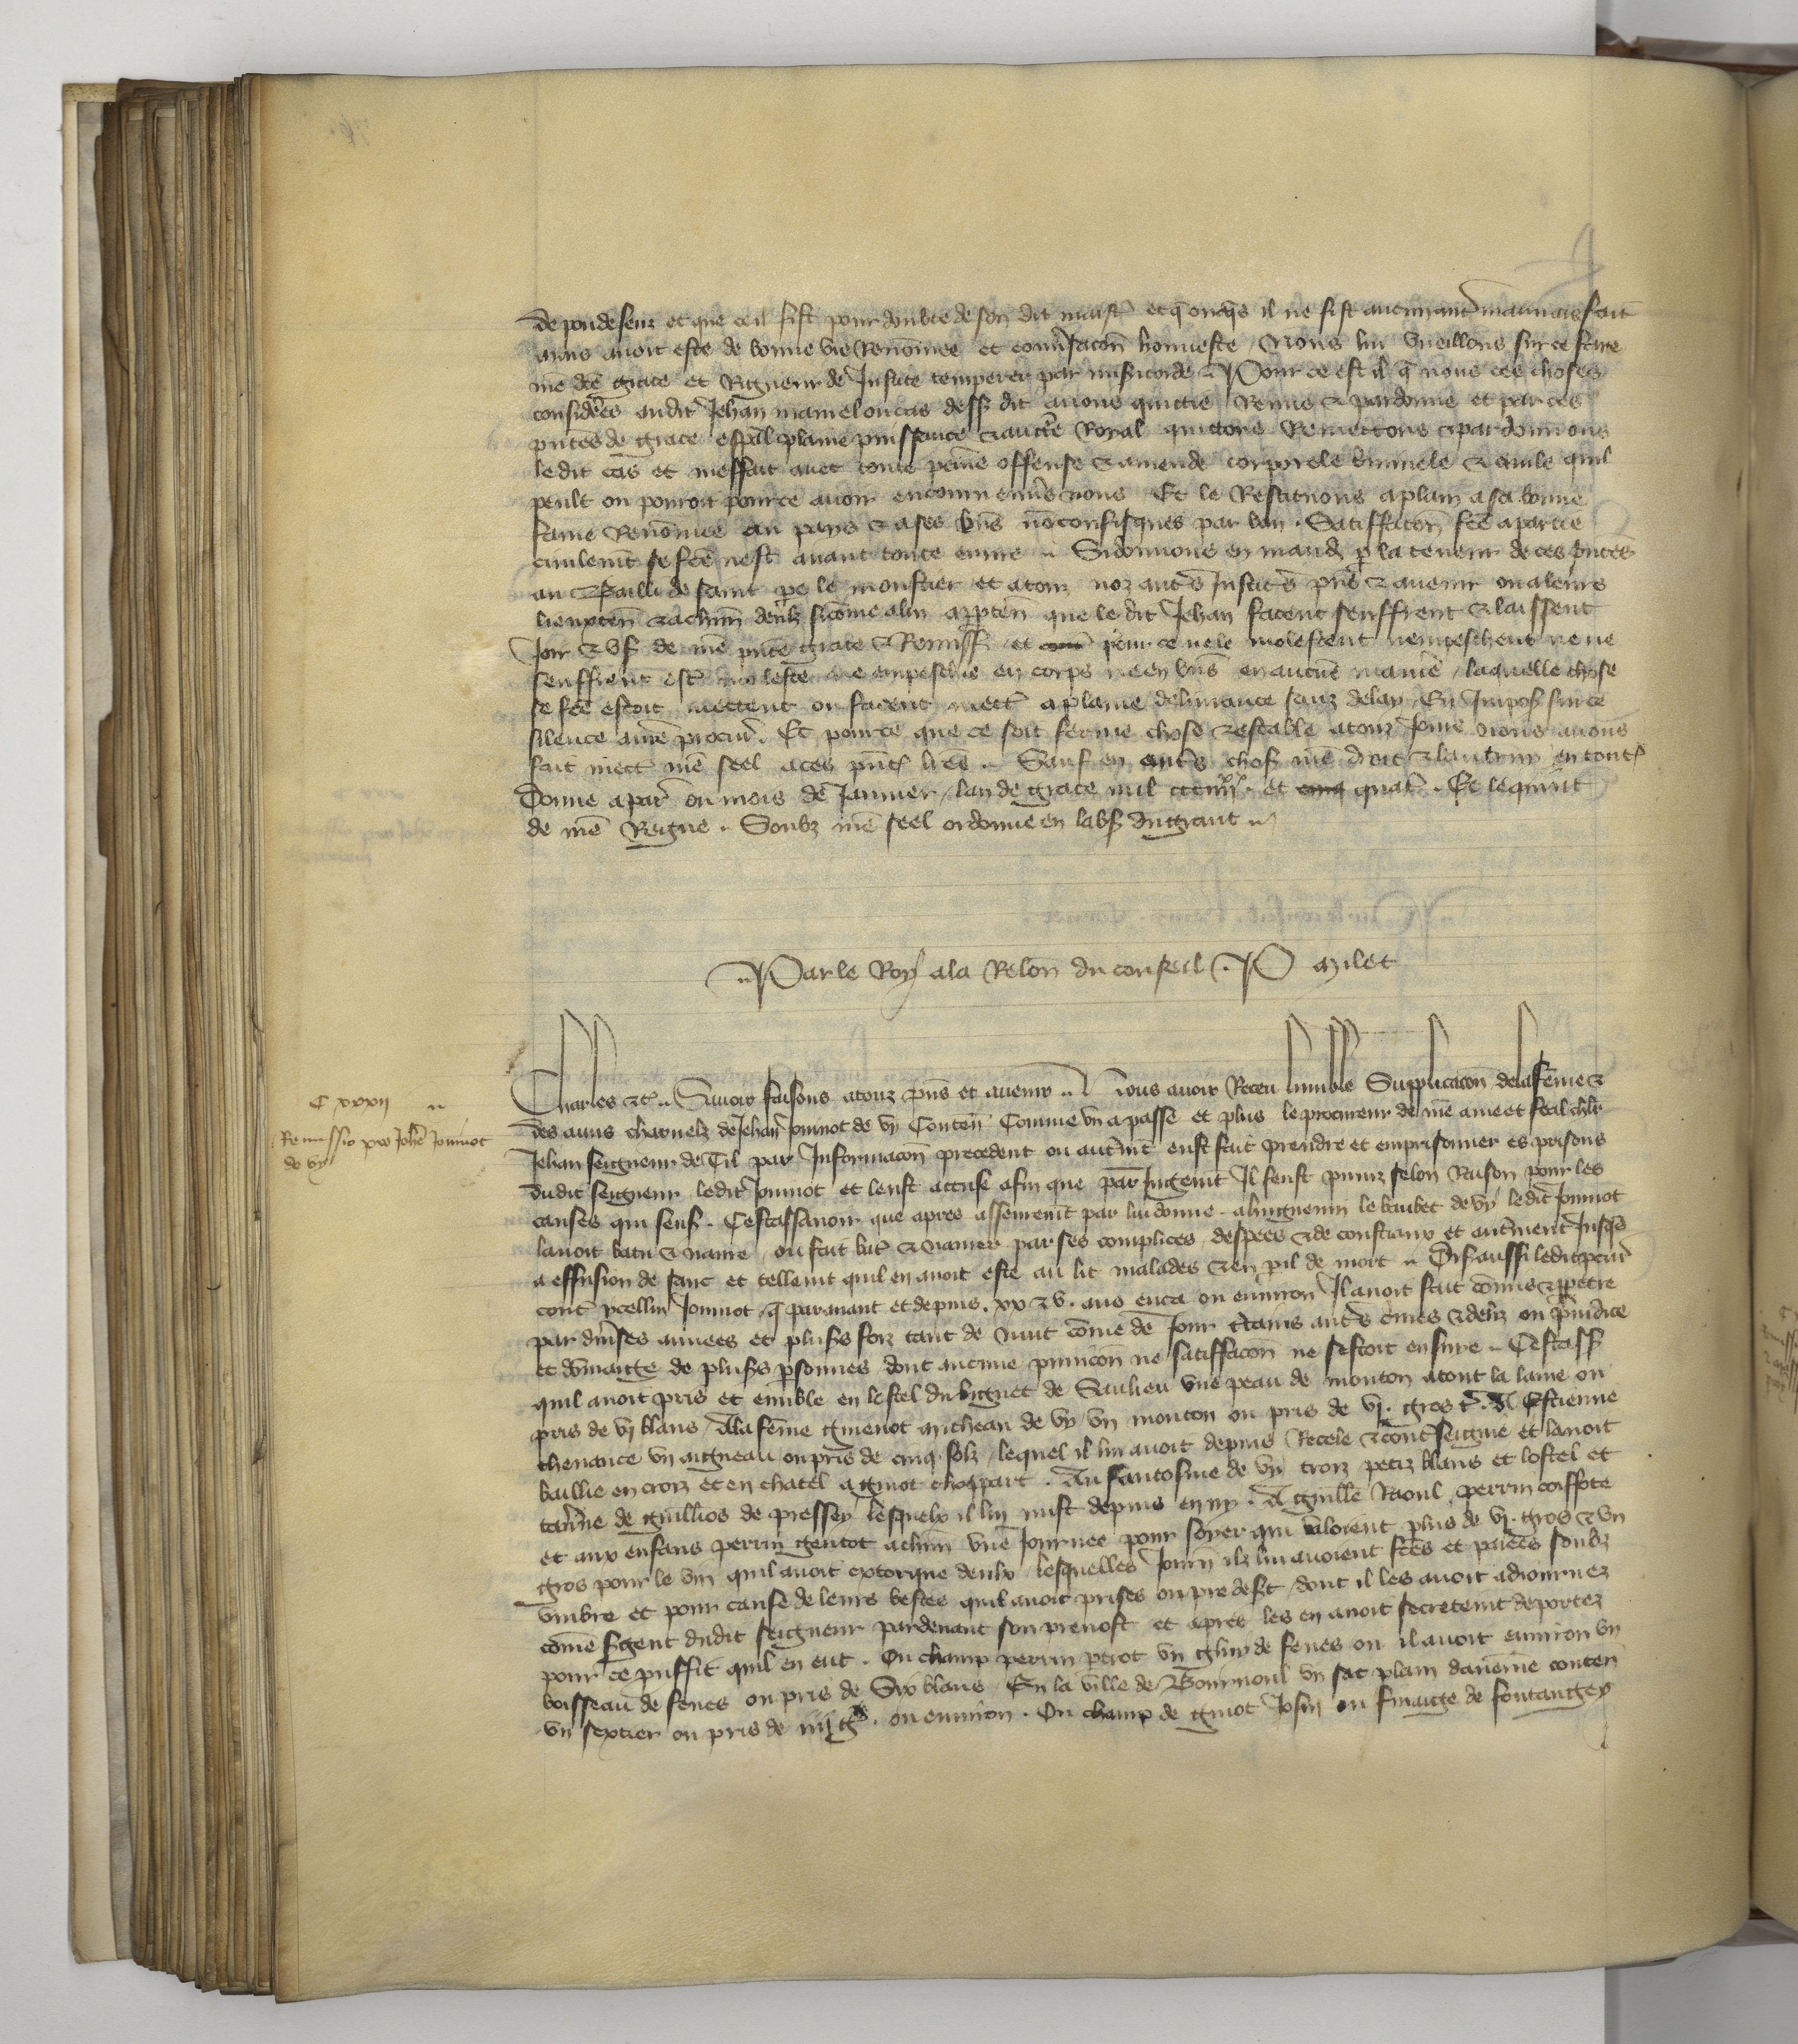 de ses et que ce il fist pour doubte de son dit maist et q̄ onq̄s il ne fist aucun aut mauvais fait
ains avoit este de bonne vie Renōmee et conv̄sacōn honneste / Nous lui vueillons sur ce faire
nr̄e dc̄e grace et Rigueur de Justice temperer par mis̄icorde .. Pour ce est il q̄ nous ces choses
consider̄es audit Jehan ou cas dess dit avons quicte Remis & pardonne et par ces
pn̄tes de grace esp̄al plaine puissance & auct̄e Royal quictons Remettons & pardonnons
le dit cas et meffait avec toute peine offense & amende corporele criminele & civile quil
peult ou pouroit pour ce avoir encouru env̄s nous Et le Restituons a plain a sa bonne
fame Renōmee au pays & a ses bn̄s nō confisques par ban . Satiffacōn fc̄e a partie
civilem̄t se fc̄e nest avant toute euvre .. Si donnons en mand̄ p̄ la teneur de ces pn̄tes
au Bailli de saint p̄e le monstier et a touz noz aut̄s Justic̄s pn̄s & avenir ou a leurs
lieuxten̄ & a chūn deulz sicōme a lui app̄ten̄ que le dit Jehan facent seuffrent & laissent
Joir & us̄ de nr̄e pn̄te grace & Remiss̄ et pour ce ne le molestent nempeschent ne ne
seuffrent est̄ moleste ne empeschie en corps ne en bn̄s en aucūe manie / laquelle chose
se fc̄e estoit mettent ou facent mett̄ a plaine delivrance sanz delay / En Impos̄ sur ce
silence a nr̄e procur̄ . Et pour ce que ce soit ferme chose & estable a touz Jours Nous avons
fait mett̄ nr̄e seel a ces pn̄t̄ lr̄es .. Sauf en aut̄s chos̄ nr̄e droit & lautruy en tout̄
Donne a par̄ ou mois de Janvier / lan de grace mil ccc iiijxx . et quat̄ . Et le quint
de nr̄e Regne .. Soubz nr̄e seel ordonne en labs̄ du grant ..
.. Par le Roy a la Relōn du conseil . P Milet
C xxxij ..
Remissio pro Joh̄e Jouinot
de vy
Charles &c̄ .. Savoir faisons a touz pn̄s et avenir .. Nous avoir Receu humble Supplicacōn de la fēme &
des amis charnelz de Jehan Jouinot de vy Conten̄ Comme un a passe et plus le procureur de nr̄e ame et feal chlr̄
Jehan seigneur de Til par Informacōn precedent ou aut̄m̄t eust fait prendre et emprisonner es prisons
dudit seigneur ledit Jouinot et leust accuse afin que par Jugem̄t Il feust puniz selon Raison pour les
causes qui sens̄ . Cestassavoir que apres assurem̄t par lui donne a huguenin le baubet de vy ledit Jouinot
lavoit batu & navre / ou fait bat̄ & navrer par ses complices despees & de cousteaux et aut̄ment Jusq̄s
a effusion de sanc et tellem̄t quil en avoit este au lit malades & en p̄il de mort .. Disant aussi ledit p̄cur̄
cont̄ ycellui Jouinot q̄ paravant et depuis . xx & v . ans enca ou environ Il avoit fait cōmis & p̄petre
par div̄ses annees et plus̄s foiz tant de nuit cōme de Jour c̄tains aut̄s c̄mes & deliz ou p̄iudice
et dōmaige de plus̄s p̄sonnes dont aucune punicōn ne satiffacōn ne sestoit ensuye .. Cestass̄
quil avoit pris et emble en lostel du de Saulieu une peau de mouton atout la laine ou
pris de vj blans / A la fēme guenot michean de vy un mouton ou pris de vj . gros t̄ . A Estienne
chenance un aigneau ou pris de cinq solz / lequel il lui avoit depuis Recele & cont̄seigne et lavoit
baillie en croiz et en chatel a choppart . Au fantosme de vy troiz petiz blans et lostel et
tav̄ne de guillīos de pressey lesquelx il lui mist depuis en ny . A guill̄e Raoul perrin coiffote
et aux enfans perrin gentot a chūn une Journee pour soyer qui valoient plus de vj . gros & un
gros pour le vin quil avoit extorque deulx lesquelles Journ̄ ilz lui avoient fc̄es et paiees soubz
umbre et pour cause de leurs bestes quil avoit prises ou pre dess̄t / dont il les avoit adiournez
cōme s̄gent dudit seigneur pardevant son prevost et apres les en avoit secretem̄t deportez
pour ce puffit quil en eut . Ou champ perrin p̄rot un gluy de feves ou il avoit environ un
boisseau de feves ou pris de Six blans / En la ville de Bournoul un sac plain davenne conten̄
un sextier ou pris de iiij gs . ou environ . Ou champ de guiot Josin ou finaige de fontangey